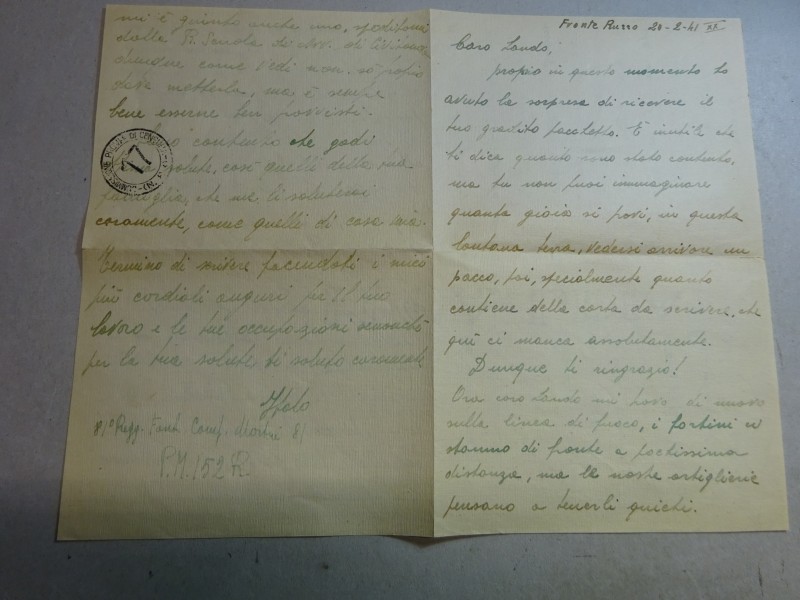 Fronte Russo 20-2-41 XX
Caro Lando,
proprio in questo momento ho
avuto la sorpresa di ricevere il
tuo gradito pacchetto. È inutile che
ti dica quanto sono stato contento,
ma tu non puoi immaginare
quanta gioia si provi, in questa
lontana terra, vedersi arrivare un
pacco, poi, specialmente quanto
contiene della carta da scrivere, che
qui ci manca assolutamente.
Dunque ti ringrazio!
Ora caro Lando mi trovo di nuovo
sulla linea di fuoco, i fortini
stanno di fronte a pochissima
distanza, ma le nostre artiglierie
pensano a tenerli quieti.
mi è giunto anche uno, speditomi
dalla R. Scuola di Avv. di
dunque come vedi non so proprio
dove metterla, ma è sempre
bene esserne ben provvisti.
contento che godi
salute, così quelli della tua
famiglia, che me li saluterai
caramente, come quelli di casa mia.
Termino di scrivere facendoti i miei
più cordiali auguri per il tuo
lavoro e le tue occupazioni nonché
per la tua salute ti saluto caramente
Italo
81° Regg. Fant. Comp. Mortai 81
P.M. 152 R
77